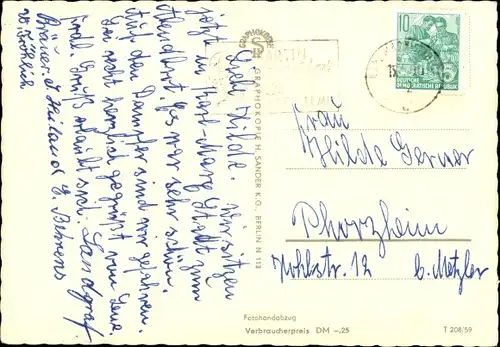 Liebe Hilde. Wir sitzen
jetzt in Karl-Marx-Stadt zum
Abendbrot. Es war sehr schön.
Auf den Dampfer sind wir gefahren.
Sei recht herzlich gegrüßt von Gena
viele Grüße erlaubt sich Landgraf
Bräuer. J. Heiland G. Behrens
W. Fröhlich
GRAPHOKOPIE
GRAPHOKOPIE H. SANDER K.G., BERLIN N 113
10
DEUTSCHE
DEMOKRATISCHE REPUBLIK
Frau
Hilde Gerner
Pforzheim
Kohlstr. 12 b. Metzler
Fotohandabzug
Verbraucherpreis DM –,25
T 208/59